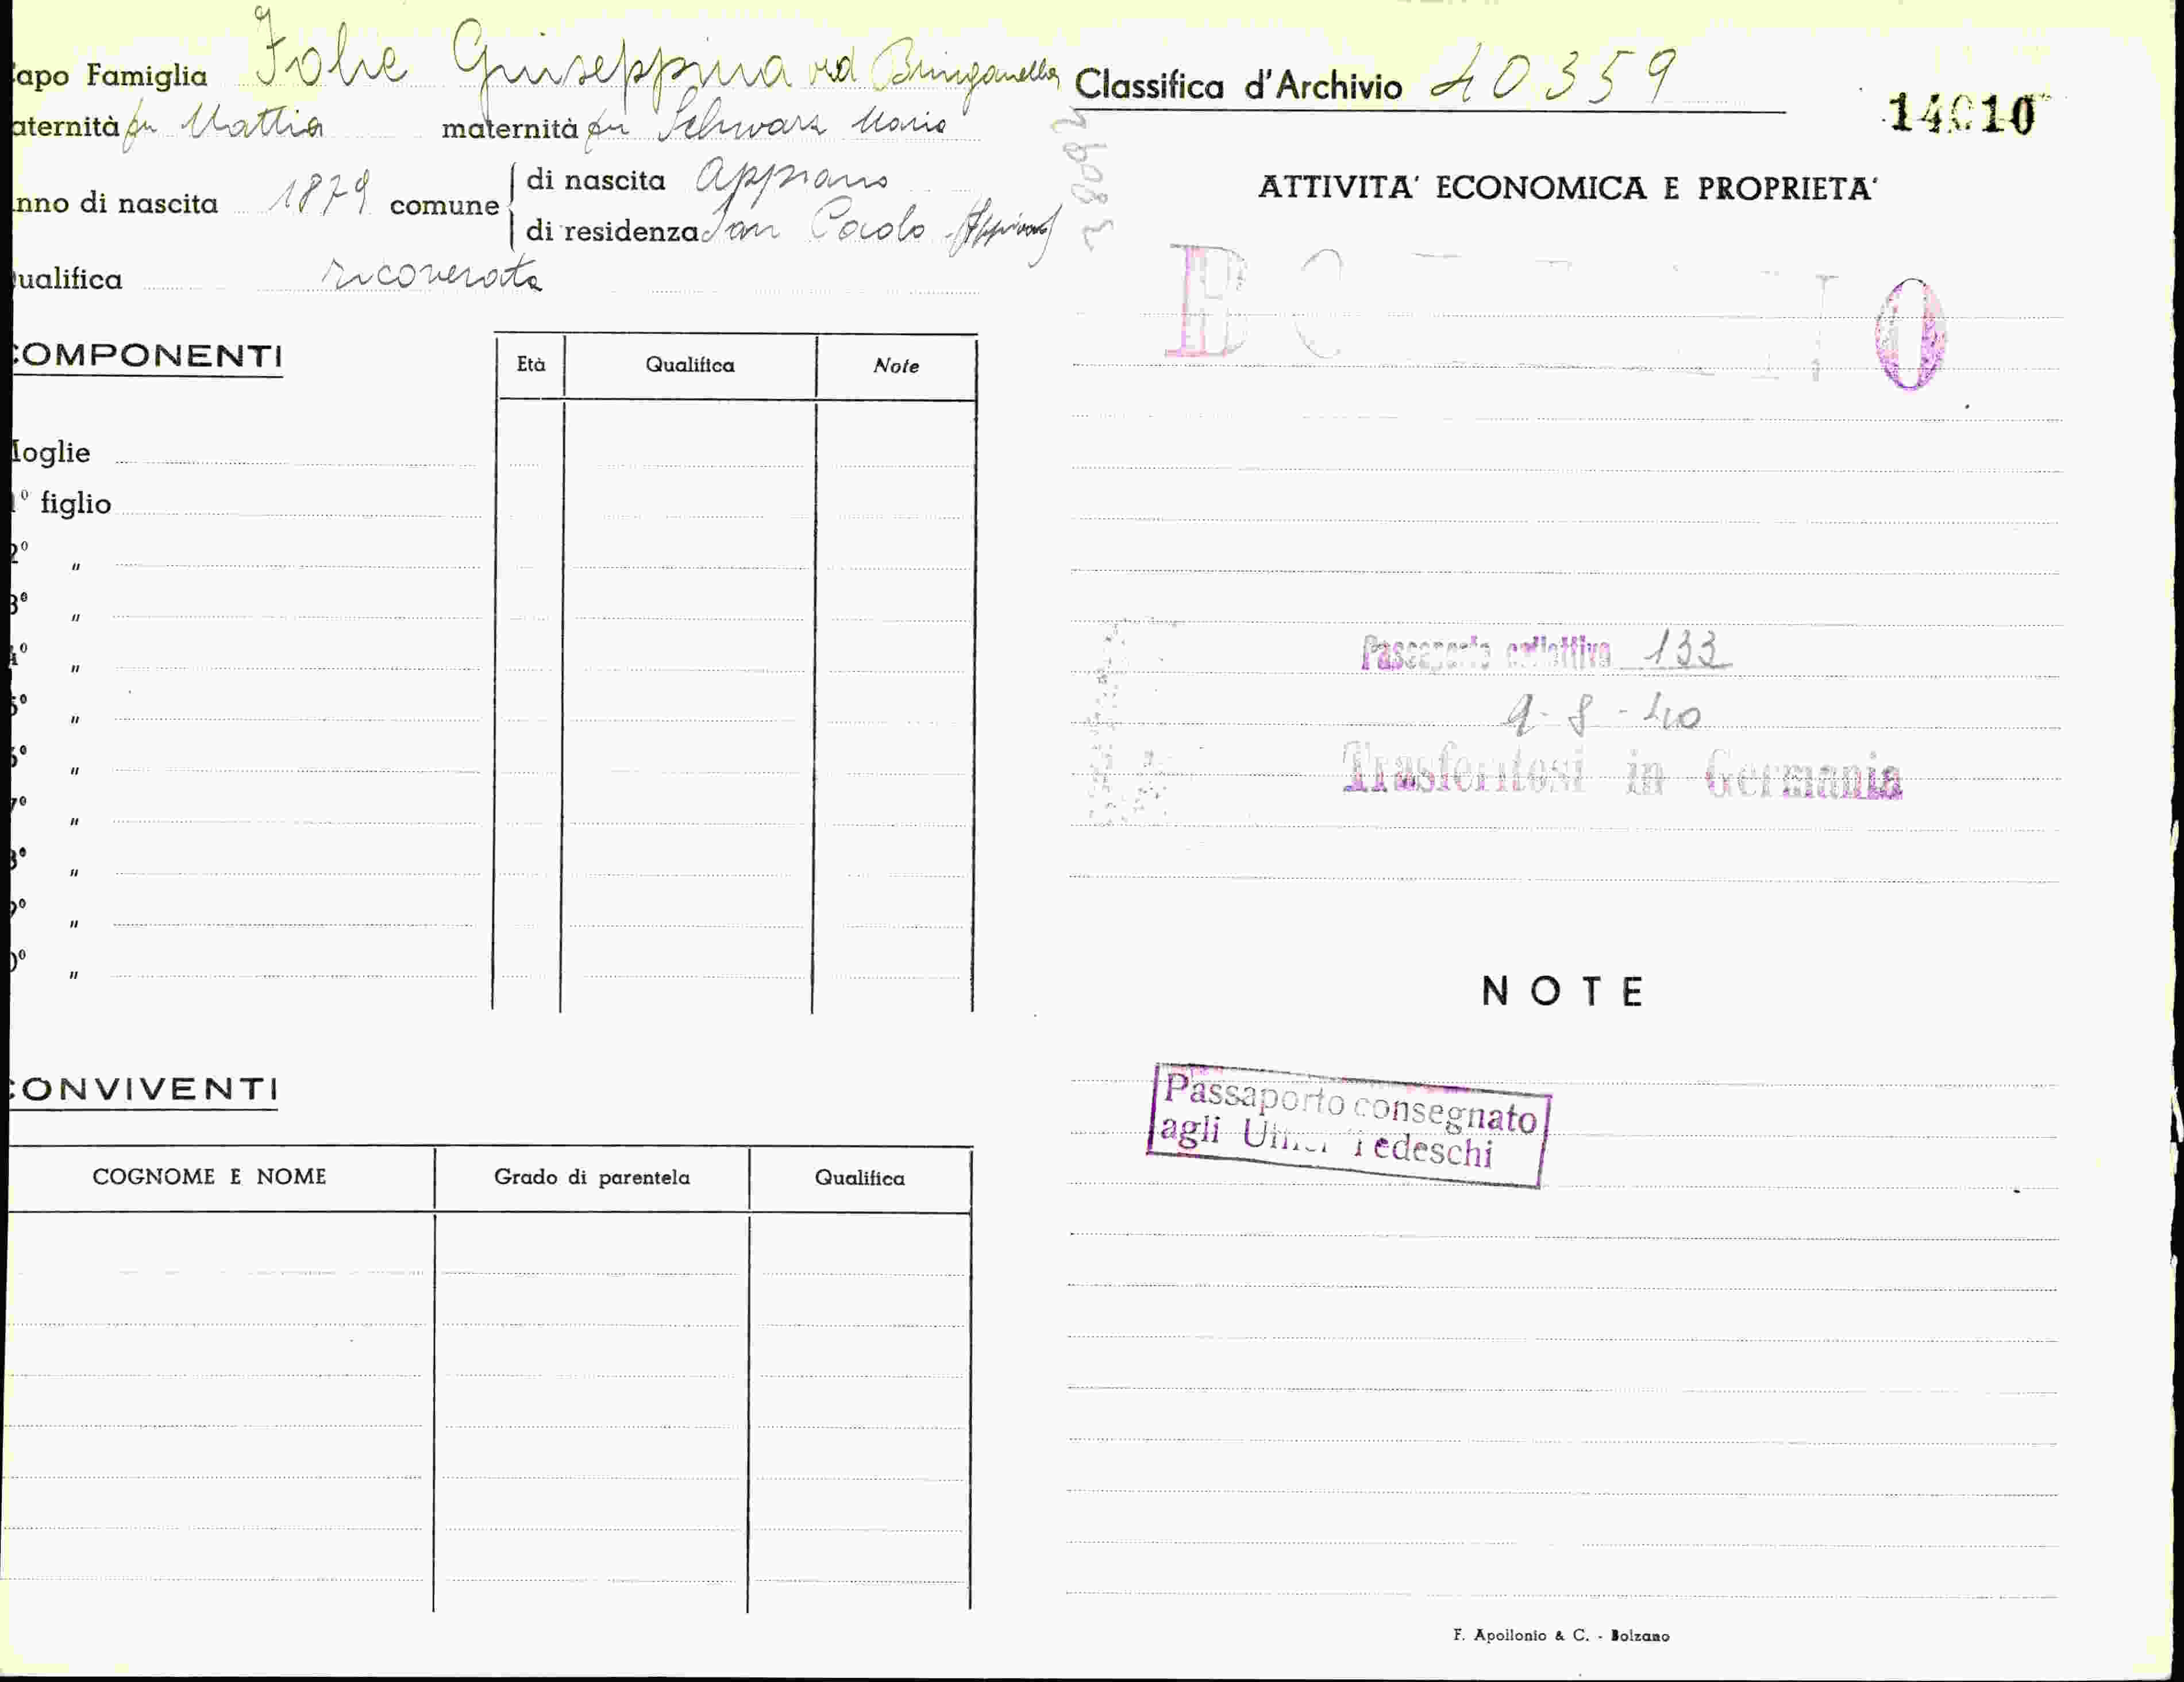 apo Famiglia Folie Giuseppina ved
aternità fu Mattia maternità fu Schwarz Maria
nno di nascita 1879 comune di nascita Appiano
di residenza San Paolo (Appiano)
ualifica ricoverata
OMPONENTI
Età Qualifica Note
oglie
1° figlio
2° "
3° "
4° "
5° "
6° "
7° "
8° "
9° "
0° "
ONVIVENTI
COGNOME E NOME Grado di parentela Qualifica
Classifica d'Archivio 40359
14010
38092
ATTIVITA' ECONOMICA E PROPRIETA'
Passaporto collettivo 133
9-8-40
Trasferitosi in Germania
NOTE
Passaporto consegnato
agli Uffici Tedeschi
F. Apollonio & C. - Bolzano